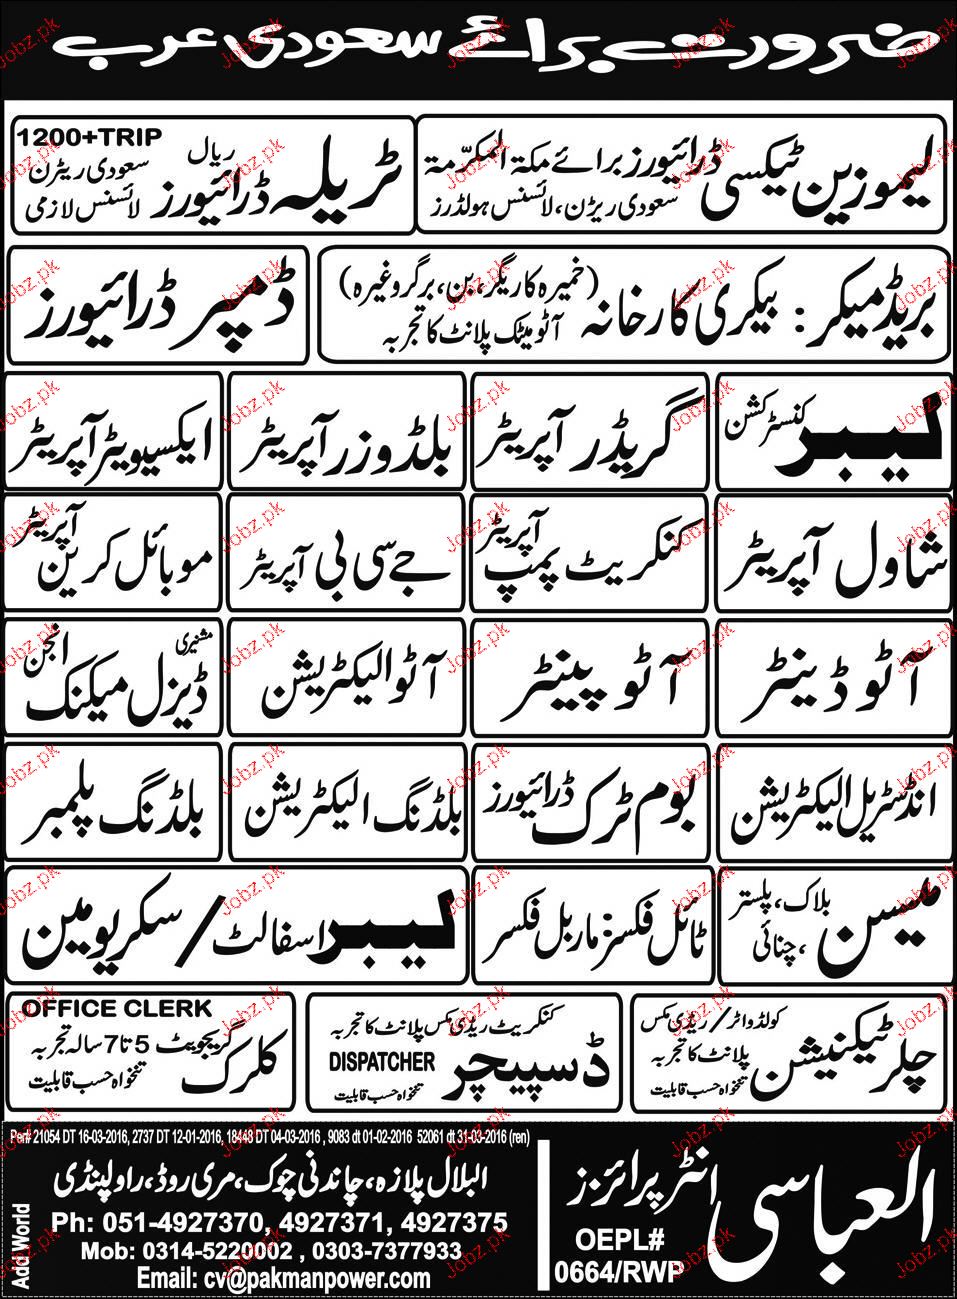 ضرورت برائے سعودی عرب
لیموزین ٹیکسی ڈرائیورز برائے مکۃ المکرّمۃ
سعودی ریٹرن، لائسنس ہولڈرز
1200+TRIP
ریال
ٹریلہ ڈرائیورز
سعودی ریٹرن
لائسنس لازمی
بریڈ میکر: بیکری کارخانہ (خمیرہ کاریگر، بن، برگر وغیرہ)
آٹومیٹک پلانٹ کا تجربہ
ڈمپر ڈرائیورز
لیبر کنسٹرکشن
گریڈر آپریٹر
بلڈوزر آپریٹر
ایکسیویٹر آپریٹر
شاول آپریٹر
کنکریٹ پمپ آپریٹر
جے سی بی آپریٹر
موبائل کرین آپریٹر
آٹو ڈینٹر
آٹو پینٹر
آٹو الیکٹریشن
مشنری
ڈیزل انجن میکنک
انڈسٹریل الیکٹریشن
بوم ٹرک ڈرائیورز
بلڈنگ الیکٹریشن
بلڈنگ پلمبر
میسن بلاک، پلستر
، چنائی
ٹائل فکسر، ماربل فکسر
لیبر اسفالٹ / سکریومین
چلر ٹیکنیشن
کولڈ واٹر / ریڈی مکس
پلانٹ کا تجربہ
تنخواہ حسب قابلیت
کنکریٹ ریڈی مکس پلانٹ کا تجربہ
ڈسپیچر DISPATCHER
تنخواہ حسب قابلیت
OFFICE CLERK
کلرک گریجویٹ 5 تا 7 سالہ تجربہ
تنخواہ حسب قابلیت
Per# 21054 DT 16-03-2016, 2737 DT 12-01-2016, 18448 DT 04-03-2016 , 9083 dt 01-02-2016 52061 dt 31-03-2016 (ren)
العباسی انٹرپرائزز
OEPL#
0664/RWP
البلال پلازہ، چاندنی چوک، مری روڈ، راولپنڈی
Ph: 051-4927370, 4927371, 4927375
Mob: 0314-5220002 , 0303-7377933
Email: cv@pakmanpower.com
Add World
Jobz.pk